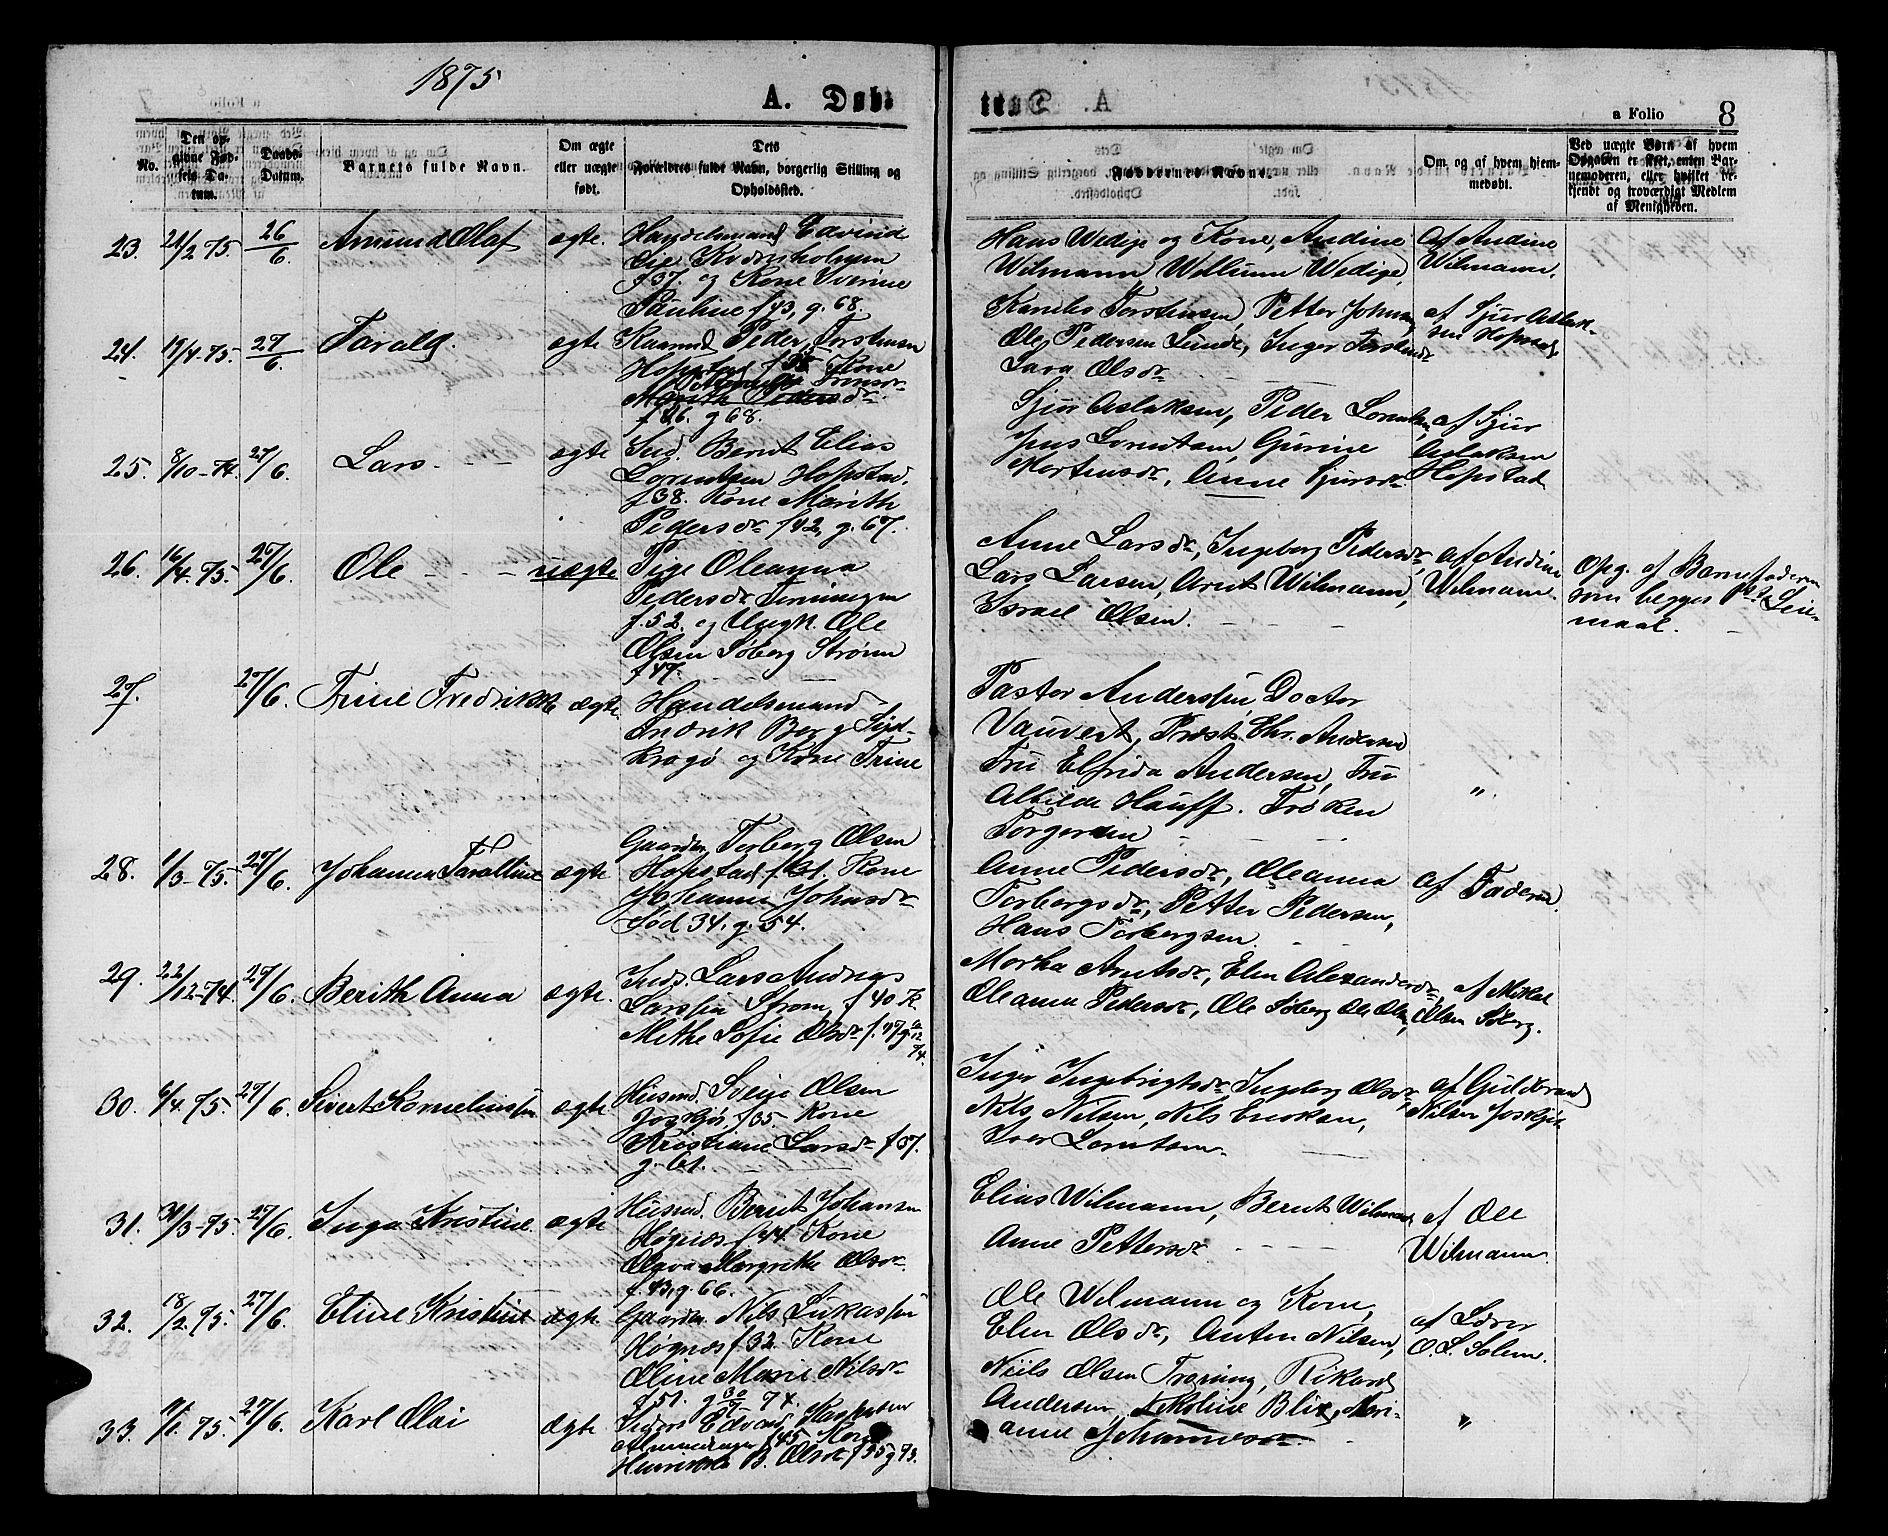 1875
A. Døb-
te
a Folio 8
No.
Den opgivne Fødsels Datum.
Daabs-Datum.
Barnets fulde Navn.
Om ægte eller uægte født.
Dets Forældres fulde Navn, borgerlig Stilling og Opholdssted.
Faddernes Navne.
Om og af hvem hjemmedøbt.
Ved uægte Børn af hvem Opgaven er skeet, enten Barnemoderen, eller hvilket bekjendt og troværdigt Medlem af Menigheden.
23. 21/2 75. 26/6 Amund Olaf ægte. Handelsmand Edvind
Kvernholmen
f 37. og Kone Sverine
Pauline f 43, g. 68.
Hans Wedege og Kone, Andine
Wilmann, Wedege,
af Andine
Wilmann.
24. 19/4 75. 27/6 Tarald. ægte Gaarmd Peder Torstensen
Hopstad Kone
f 46. g 68.
Torstensen, Petter Johns
Ole Pedersen Sunde, Inger Torstensdr
Lara Olsdr
af Sjur Aslak-
sen Hopstad
25. 8/10-74. 27/6. Lars. ægte Ind. Bernt Elias
Lorentsen Hopstad.
f 38. Kone Marith
Pedersdr f 42, g. 67.
Sjur Aslaksen, Peder Lorentsen,
Jens Lorentsen, Gurine
Mortensdr, Anne Sjursdr
af Sjur
Aslaksen
Hopstad
26. 16/4 75. 27/6. Ole uægte Pige Oleanna
Pedersdr Terningen
f. 52. og Ungk. Ole
Olsen Søberg Strøm
f 47.
Anne Larsdr, Ingeborg Pedersdr,
Lars Larsen, Arnt Wilmann,
Israel Olsen.
af Andine
Wilmann.
Opg. af Barnefaderen
som begges 1ste Leie-
maal.
27. 27/6. Trine Fredrikke ægte. Handelsmand
Fredrik Berg Syd-
kragø og Kone Trine
Pastor Anderssen, Doctor
Vauvert, Prest. Chr. Andersen
Fru Elfrida Andersen, Fru
Alvilde Hauff. Frøken
Torgersen
".
28. 1/3-75. 27/6. Johanna Taraldine ægte Gaardm. Torberg Olsen
Hopstad Kone
Johanna Johnsdr
født 34. g. 54.
Anne Pedersdr, Oleanna
Torbergsdr, Petter Pedersen,
Hans Torbergsen.
af Faderen.
29. 22/12-74. 27/6. Berith Anna ægte. Inds. Lars Andreas
Larssen Strøm, f 40 K.
Methe Sofie Olsdr
Martha Arntsdr, Elen Alexandersdr,
Oleanna Pedersdr, Ole Søberg Ole Olsen,
af Mikal
Olsen Søberg.
30. 6/4. 75. 27/6. Sivert Korneliussen ægte. Husmd. Svein Olsen
Joskjør, f 35. Kone
Kristiane Larsdr f 37.
g. 61.
Inger Ingebrigtsdr, Ingeborg Olsdr,
Nils Nilsen, Nils Eriksen,
Iver Lorntsen.
af Guldbrand
Nilsen
31. 31/3-75. 27/6. Inga Kristine. ægte Husmd. Bernt Johansen
Høgnæs f 44. Kone
Olava Margrethe Olsdr.
f. 43, g. 66.
Elias Wilmann, Bernt Wilmann
Anne Pettersdr
af Ole
Wilmann.
32. 18/2. 75. 27/6. Eline Kristine ægte Gaardm. Nils Lukassen
Høgnæs f 32. Kone
Oline Marie Nilsdr
f. 51. g 74.
Ole Wilmann og Kone,
Elen Olsdr, Anton Nilsen,
af Lærer
O. L. Solem.
33. 75. 27/6. Karl Olai ægte Edvard
f 45. Kone
B. Olsdr f 55 g 73.
Niels Olsen Træning, Rikard
Andersen, Nikoline Blix, Mari-
anne Johannesdr.
"